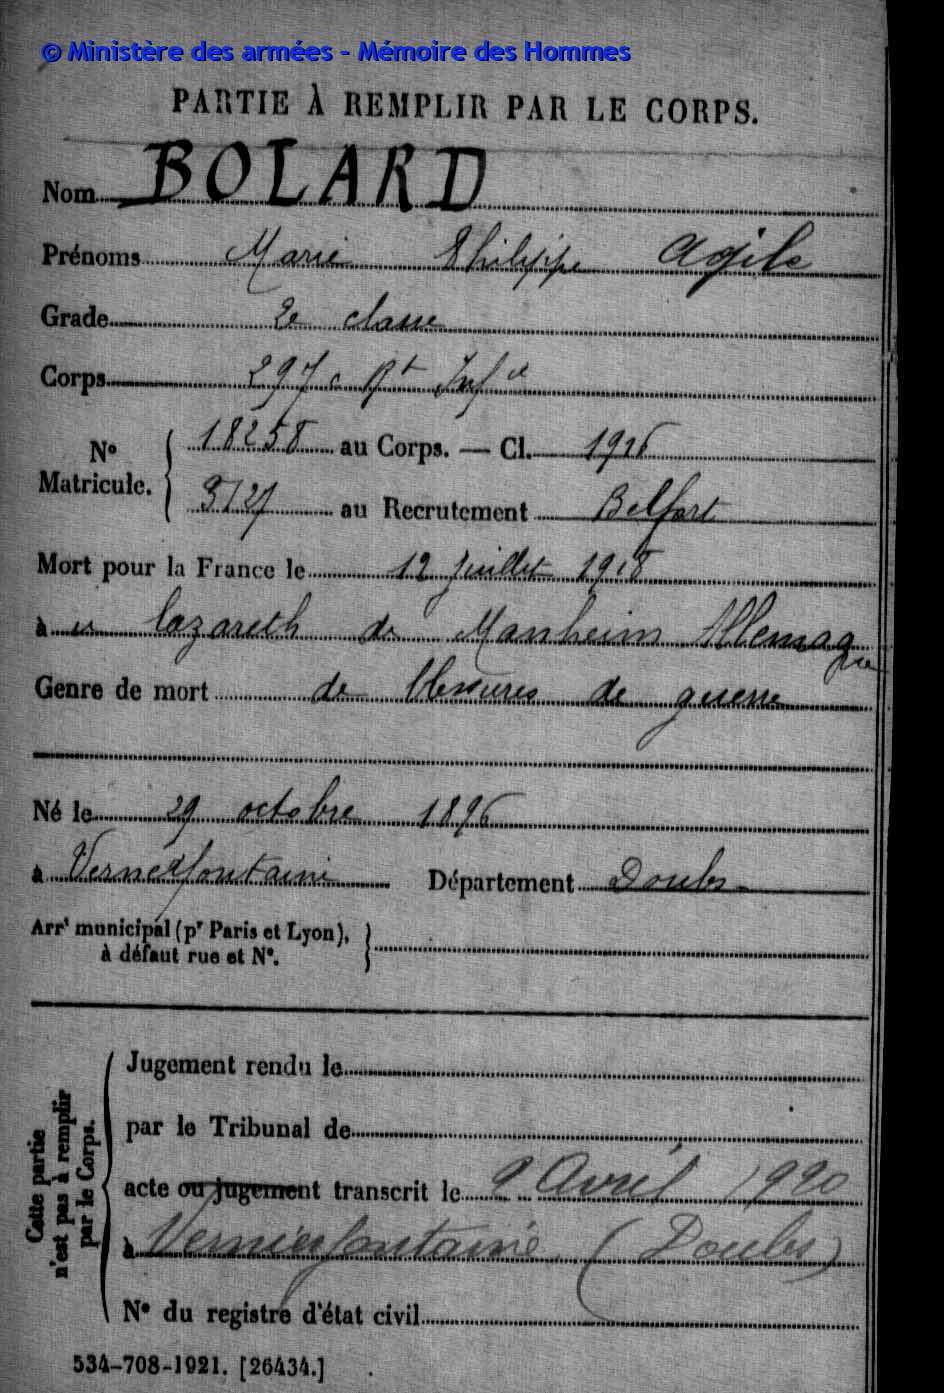 © Ministère des armées - Mémoire des Hommes
PARTIE À REMPLIR PAR LE CORPS.
Nom BOLARD
Prénoms Marie Philippe Agile
Grade 2e classe
Corps 297e Rt Infie
No Matricule. { 18258 au Corps. — Cl. 1916
3127 au Recrutement Belfort
Mort pour la France le 12 juillet 1918
à lazareth de Manheim Allemagne
Genre de mort de blessures de guerre
Né le 29 octobre 1896
à Vernierfontaine Département Doubs
Arrt municipal (pr Paris et Lyon),
à défaut rue et No. }
Cette partie n'est pas à remplir par le Corps. {
Jugement rendu le
par le Tribunal de
acte ou jugement transcrit le 2 Avril 1920
à Vernierfontaine (Doubs)
No du registre d'état civil
534-708-1921. [26434.]